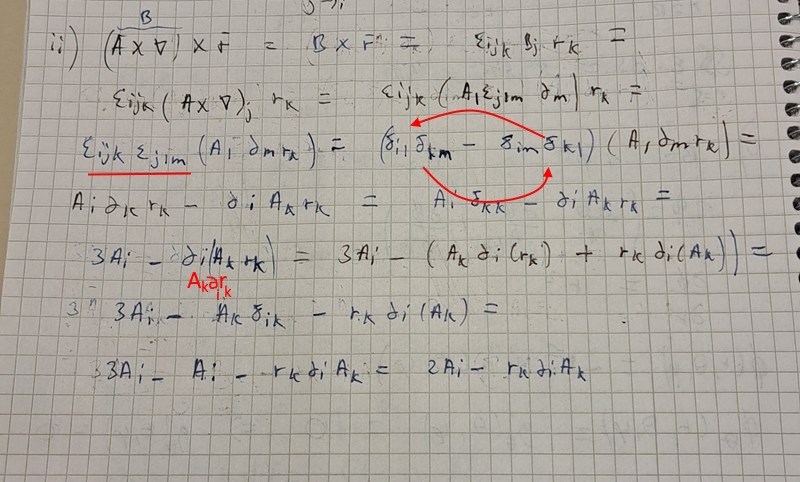 B
ii) (A × ∇) × r̄ = B × r̄ = εijk Bj rk =
εijk (A × ∇)j rk = εijk (Al εjlm ∂m) rk =
εijk εjlm (Al ∂m rk) = (δil δkm − δim δkl) (Al ∂m rk) =
Ai ∂k rk − ∂i Ak rk = Ai δkk − ∂i Ak rk =
3Ai − ∂i(Ak rk) = 3Ai − (Ak ∂i(rk) + rk ∂i(Ak)) =
Ak∂irk
3Ai − Ak δik − rk ∂i(Ak) =
3Ai − Ai − rk ∂i Ak = 2Ai − rk ∂i Ak